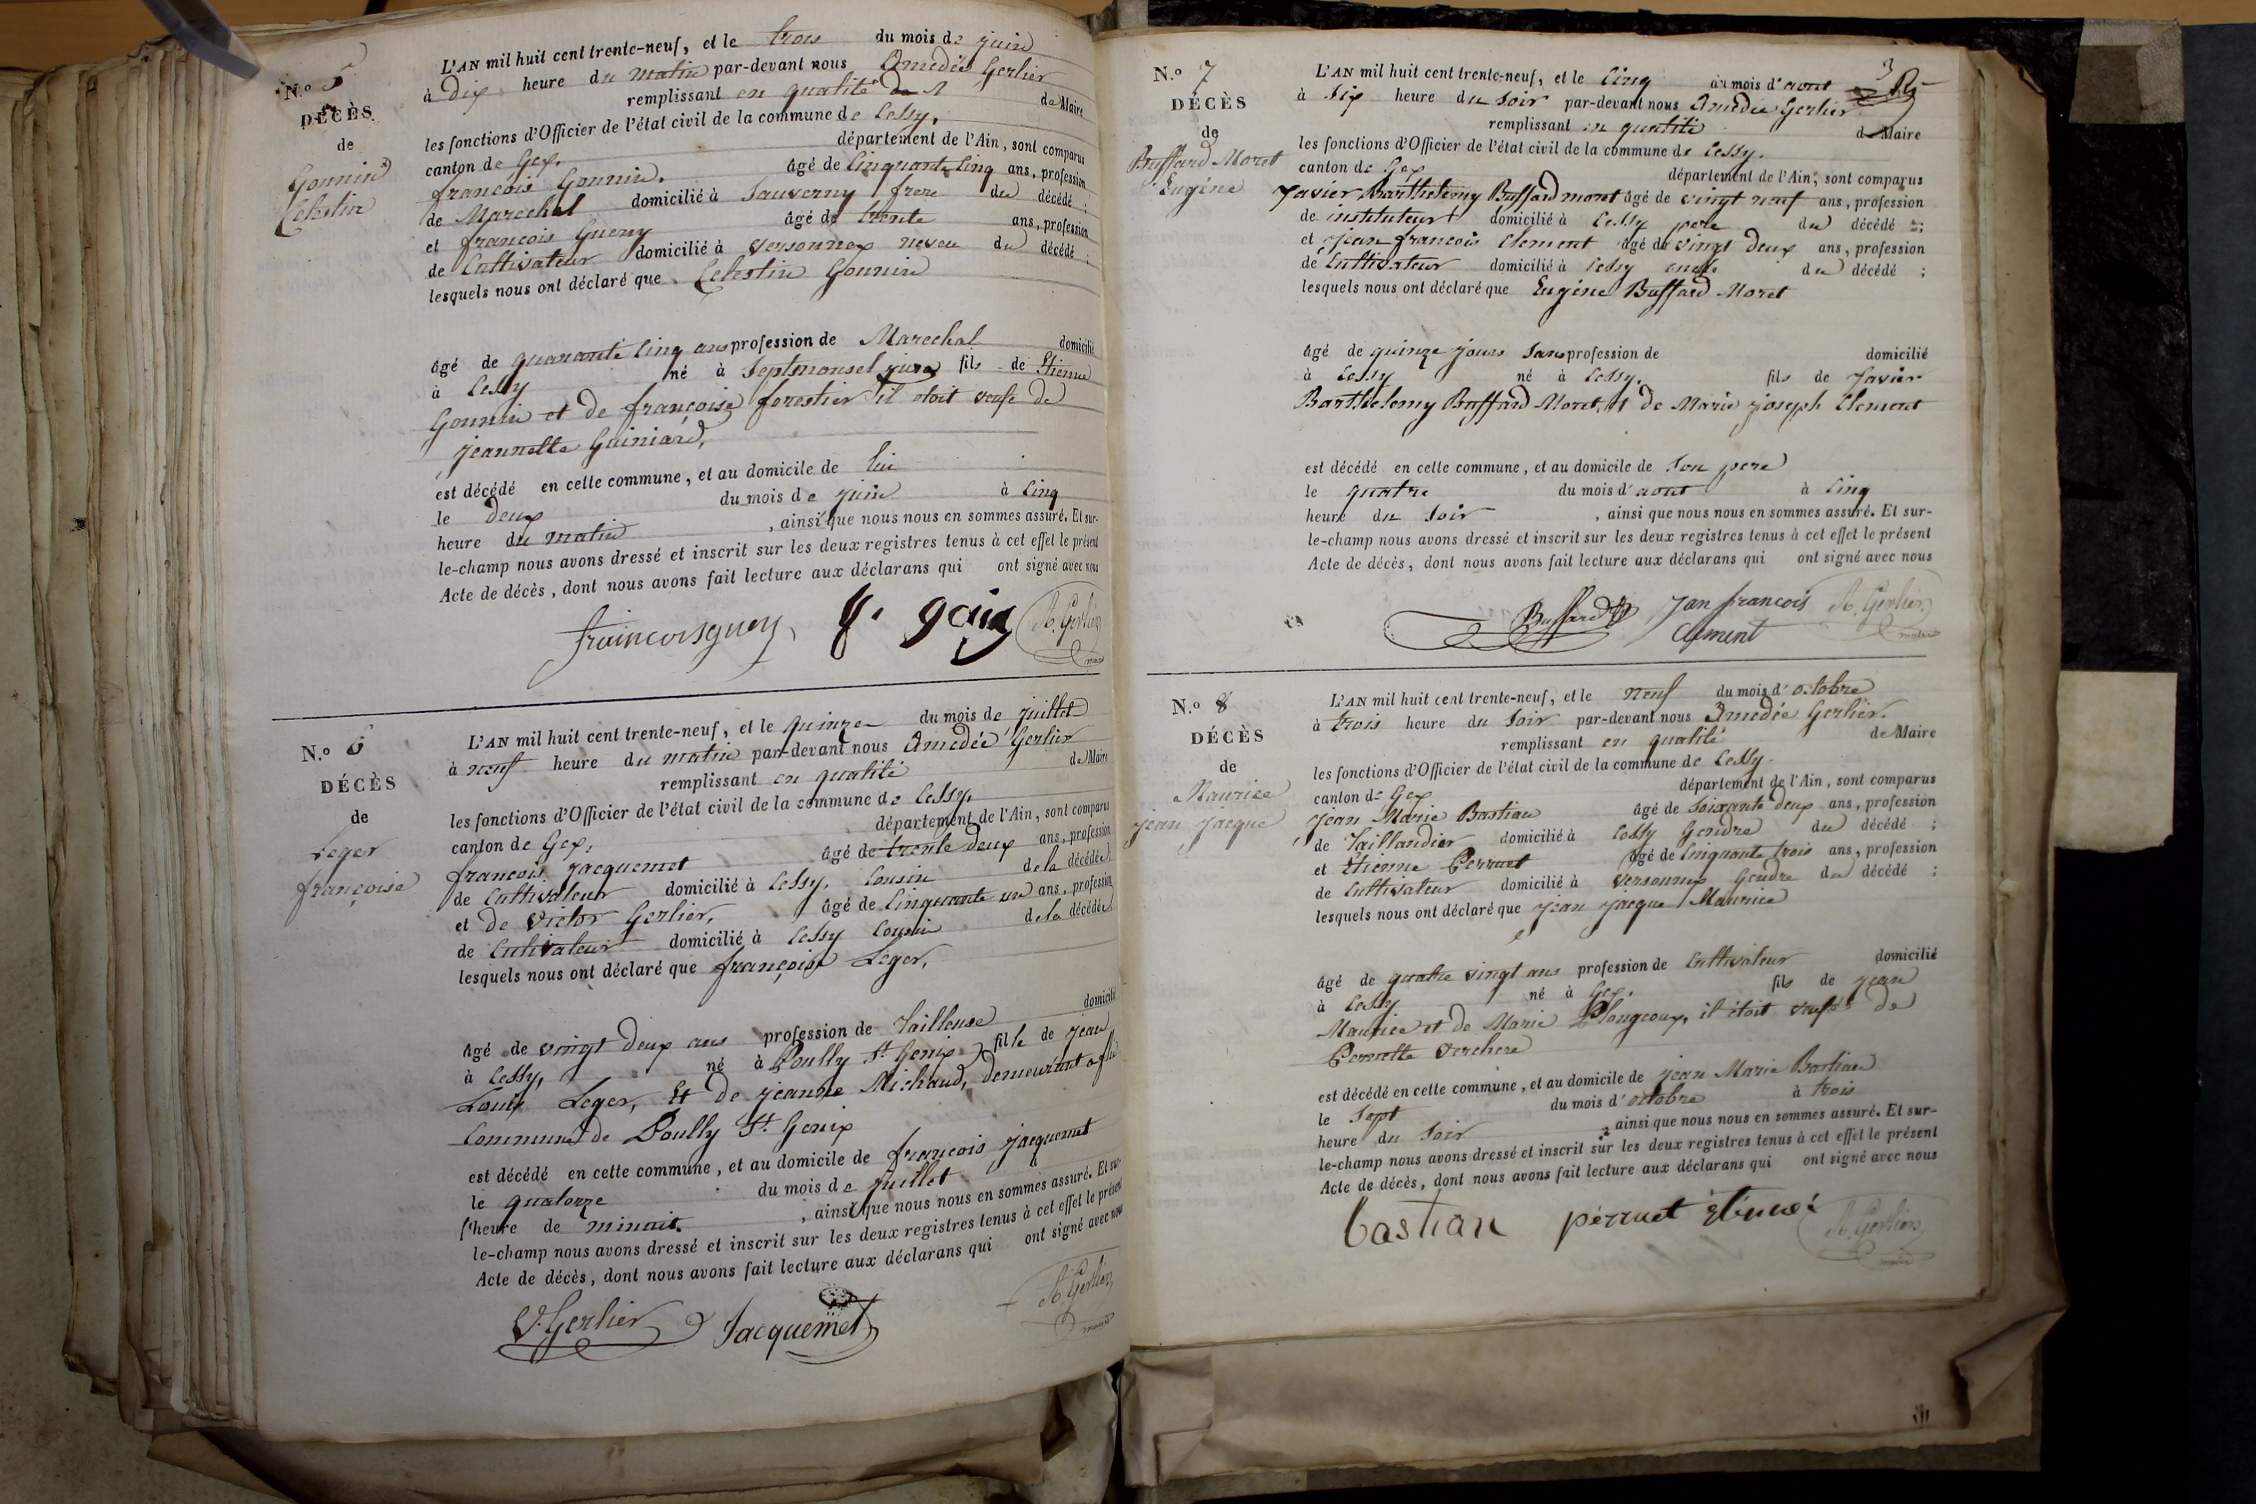 N.° 5
DÉCÈS
de
Gonnin
Celestin
L'AN mil huit cent trente-neuf, et le trois du mois de juin
à dix heure du matin par-devant nous Amedée Gerlier
remplissant en qualité de Maire
les fonctions d'Officier de l'état civil de la commune de Cessy,
canton de Gex, département de l'Ain, sont comparus
francois Gonnin, âgé de Cinquante Cinq ans, profession
de Marechal domicilié à Sauverny frere du décédé ;
et francois Gueny âgé de trente ans, profession
de Cultivateur domicilié à Versonnex neveu du décédé ;
lesquels nous ont déclaré que Celestin Gonnin
âgé de quarante Cinq ans profession de Marechal domicilié
à Cessy né à Septmonsel jura fils de Etienne
Gonnin et de françoise forestier il etoit veuf de
jeannette Guiniard,
est décédé en cette commune, et au domicile de lui
le deux du mois de juin à Cinq
heure du matin , ainsi que nous nous en sommes assuré. Et sur-
le-champ nous avons dressé et inscrit sur les deux registres tenus à cet effet le présent
Acte de décès, dont nous avons fait lecture aux déclarans qui ont signé avec nous
A. Gerlier
maire
N.° 6
DÉCÈS
de
Leger
françoise
L'AN mil huit cent trente-neuf, et le quinze du mois de juillet
à neuf heure du matin par-devant nous Amedée Gerlier
remplissant en qualité de Maire
les fonctions d'Officier de l'état civil de la commune de Cessy,
canton de Gex, département de l'Ain, sont comparus
francois jacquemet âgé de trente deux ans, profession
de Cultivateur domicilié à Cessy, Cousin de la décédée
et de Victor Gerlier, âgé de Cinquante un ans, profession
de Cultivateur domicilié à Cessy Cousin de la décédée
lesquels nous ont déclaré que françoise Leger,
âgé de vingt deux ans profession de Tailleuse domicilié
à Cessy, né à Poully St Genix fille de jean
Louis Leger, Et de jeanne Michaud, demeurant
Commune de Poully St Genix
est décédé en cette commune, et au domicile de francois jacquemet
le quatorze du mois de juillet à
l'heure de minuit. , ainsi que nous nous en sommes assuré. Et sur-
le-champ nous avons dressé et inscrit sur les deux registres tenus à cet effet le présent
Acte de décès, dont nous avons fait lecture aux déclarans qui ont signé avec nous
V. Gerlier Jacquemet A. Gerlier
maire
3
N.° 7
DÉCÈS
de
Buffard Moret
Eugéne
L'AN mil huit cent trente-neuf, et le Cinq du mois d'aout
à Six heure du Soir par-devant nous Amedée Gerlier
remplissant en qualité de Maire
les fonctions d'Officier de l'état civil de la commune de Cessy.
canton de Gex département de l'Ain, sont comparus
Xavier Barthelemy Buffard moret âgé de vingt neuf ans, profession
de instituteur domicilié à Cessy pere du décédé ;
et jean francois Clement âgé de vingt deux ans, profession
de Cultivateur domicilié à Cessy oncle du décédé ;
lesquels nous ont déclaré que Eugéne Buffard Moret
âgé de quinze jours Sans profession de domicilié
à Cessy né à Cessy. fils de Xavier
Barthelemy Buffard Moret, et de Marie joseph Clement
est décédé en cette commune, et au domicile de Son pere
le quatre du mois d'aout à Cinq
heure du Soir , ainsi que nous nous en sommes assuré. Et sur-
le-champ nous avons dressé et inscrit sur les deux registres tenus à cet effet le présent
Acte de décès, dont nous avons fait lecture aux déclarans qui ont signé avec nous
Buffard Jan francois A. Gerlier
Clement maire
N.° 8
DÉCÈS
de
Maurice
jean jacque
L'AN mil huit cent trente-neuf, et le neuf du mois d'octobre
à trois heure du Soir par-devant nous Amedée Gerlier.
remplissant en qualité de Maire
les fonctions d'Officier de l'état civil de la commune de Cessy.
canton de Gex département de l'Ain, sont comparus
jean Marie Bastian âgé de Soixante deux ans, profession
de Taillandier domicilié à Cessy Gendre du décédé ;
et Etienne Perruet âgé de Cinquante trois ans, profession
de Cultivateur domicilié à Versonnex Gendre du décédé ;
lesquels nous ont déclaré que jean jacque Maurice
âgé de quatre vingt ans profession de Cultivateur domicilié
à Cessy né à Gex. fils de jean
Maurice et de Marie Plongeoux, il étoit veuf de
Pernette Verchere
est décédé en cette commune, et au domicile de jean Marie Bastian
le Sept du mois d'octobre à trois
heure du Soir , ainsi que nous nous en sommes assuré. Et sur-
le-champ nous avons dressé et inscrit sur les deux registres tenus à cet effet le présent
Acte de décès, dont nous avons fait lecture aux déclarans qui ont signé avec nous
bastian pérruet A. Gerlier
maire